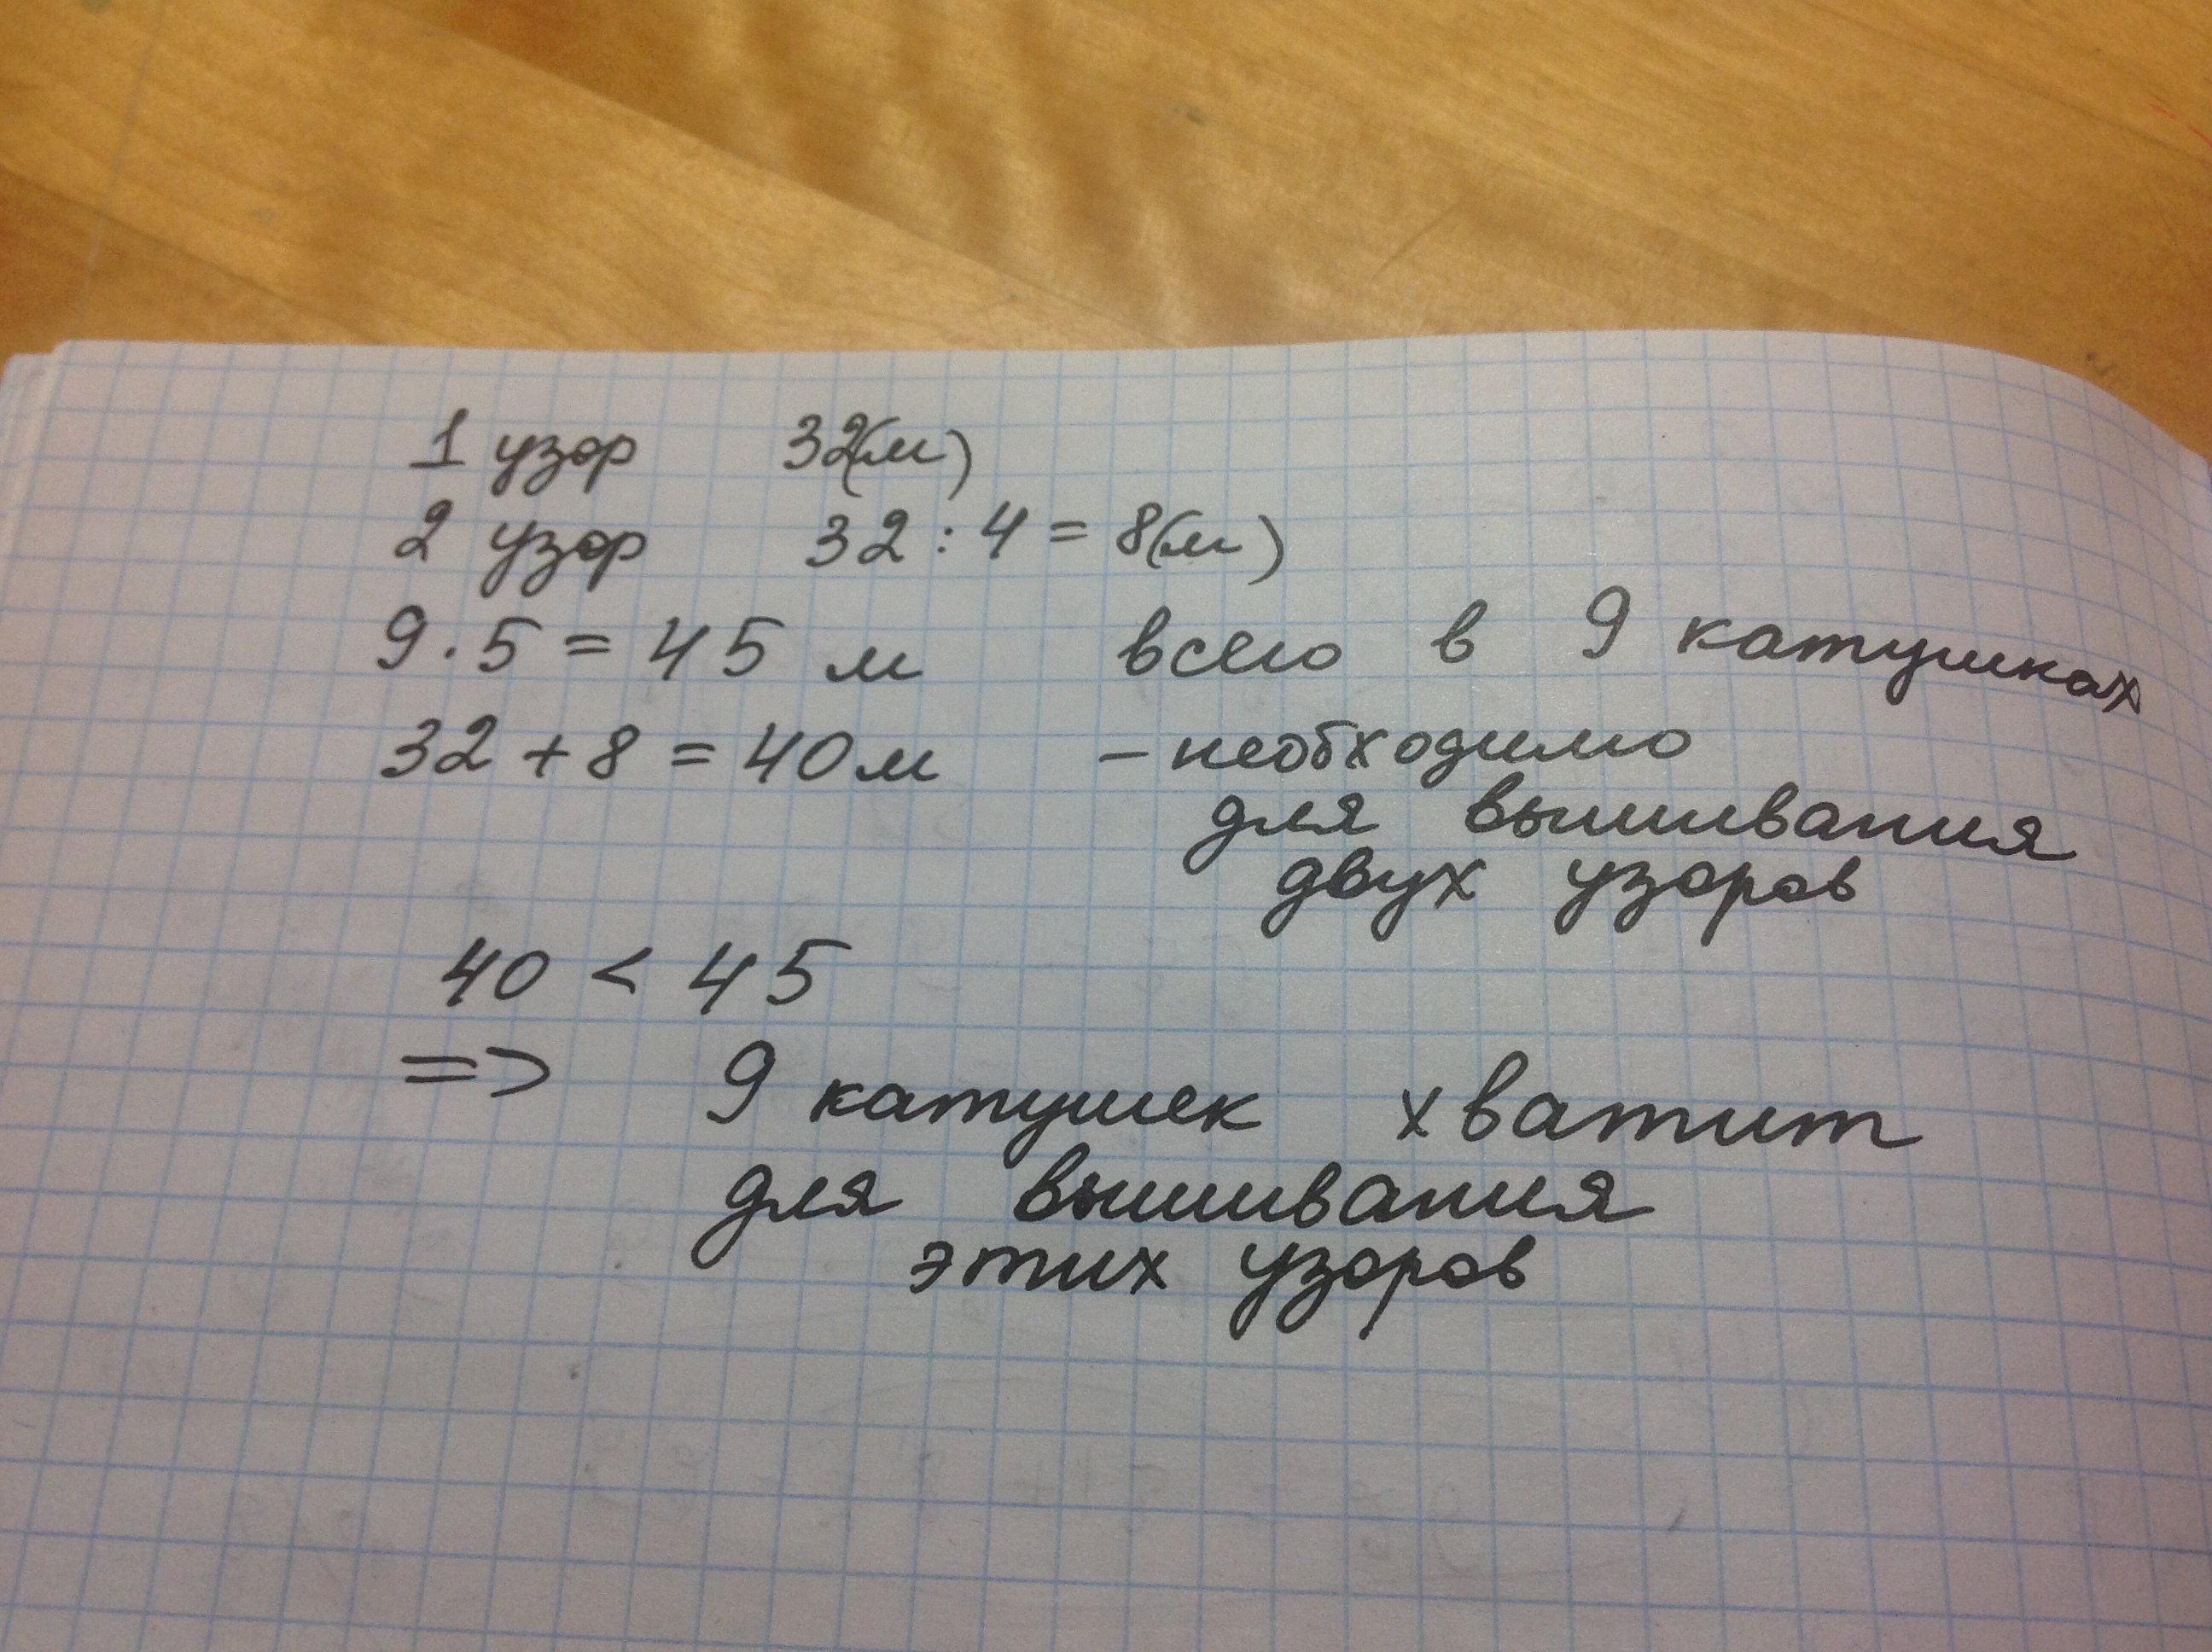 1 узор 32(м)
2 узор 32 : 4 = 8(м)
9 · 5 = 45 м всего в 9 катушках
32 + 8 = 40 м - необходимо
для вышивания
двух узоров
40 < 45
=> 9 катушек хватит
для вышивания
этих узоров